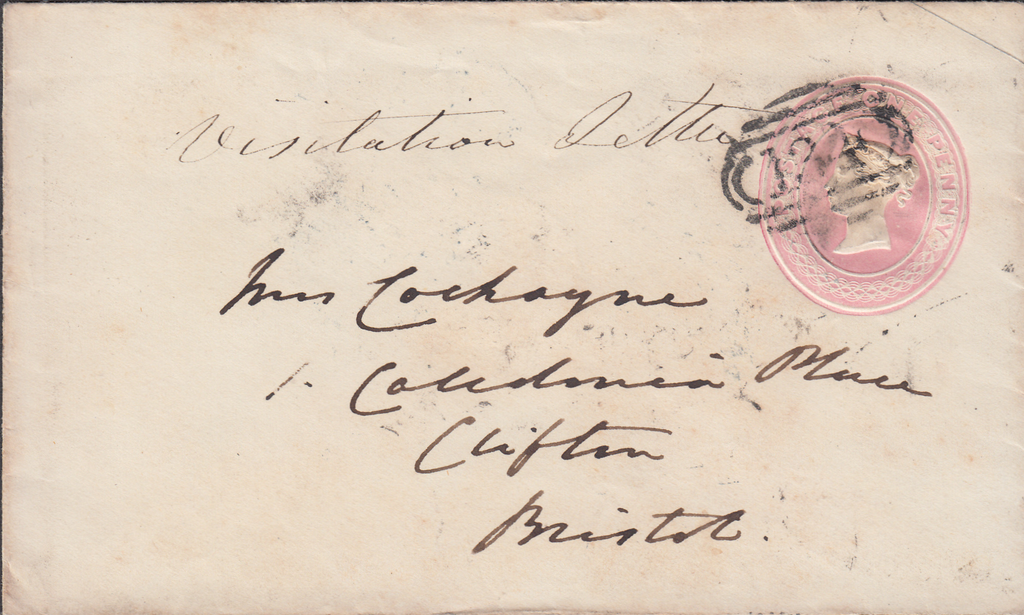 Visitation Letter
ONE PENNY
Mrs Cockayne
1. Caledonia Place
Clifton
Bristol.